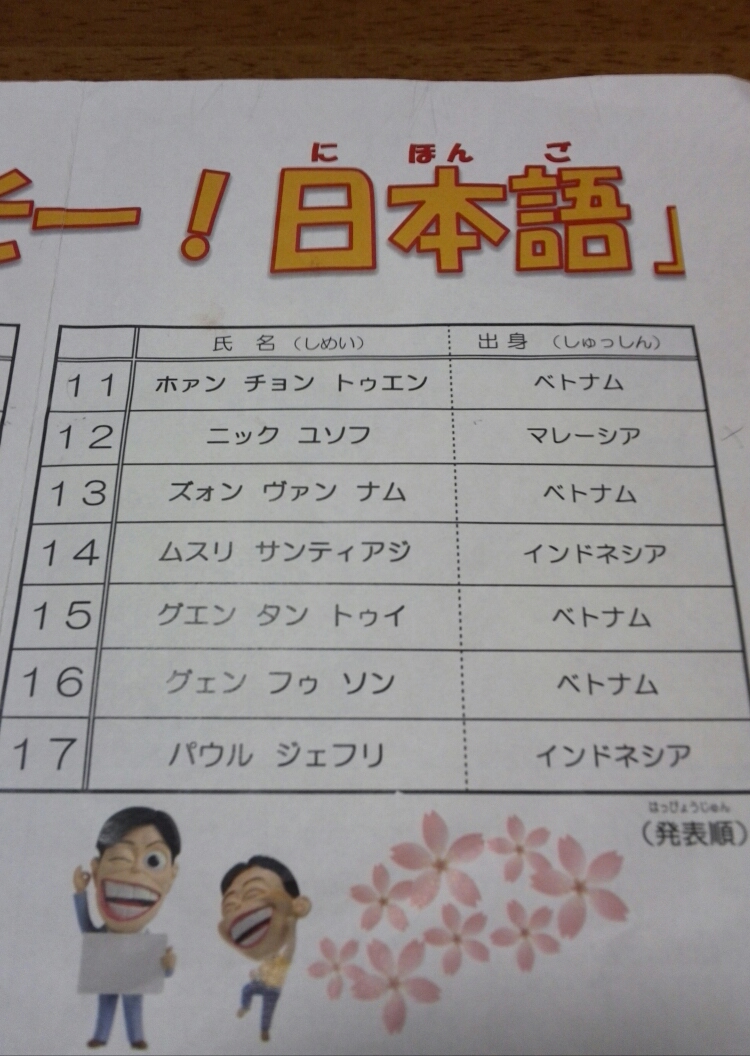 に ほん ご
そー！日本語」
氏 名 （しめい） 出 身 （しゅっしん）
11 ホァン チョン トゥエン ベトナム
12 ニック ユソフ マレーシア
13 ズォン ヴァン ナム ベトナム
14 ムスリ サンティアジ インドネシア
15 グエン タン トゥイ ベトナム
16 グェン フゥ ソン ベトナム
17 パウル ジェフリ インドネシア
はっぴょうじゅん
（発表順）